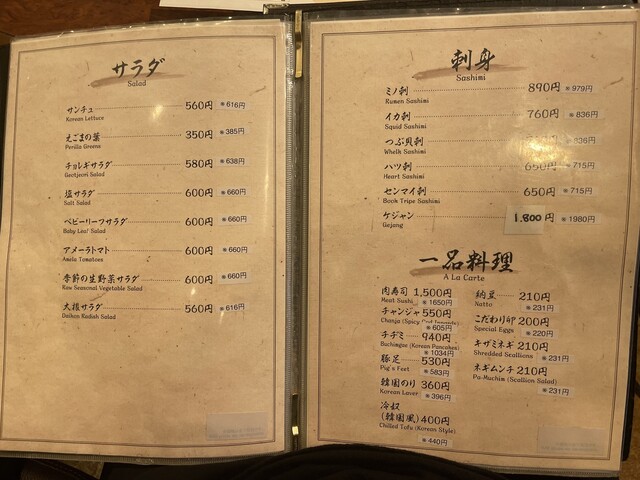 サラダ
Salad
サンチュ 560円 ※616円
Korean Lettuce
えごまの葉 350円 ※385円
Perilla Greens
チョレギサラダ 580円 ※638円
Geotjeori Salad
塩サラダ 600円 ※660円
Salt Salad
ベビーリーフサラダ 600円 ※660円
Baby Leaf Salad
アメーラトマト 600円 ※660円
Amela Tomatoes
季節の生野菜サラダ 600円 ※660円
Raw Seasonal Vegetable Salad
大根サラダ 560円 ※616円
Daikon Radish Salad
刺身
Sashimi
ミノ刺 890円 ※979円
Rumen Sashimi
イカ刺 760円 ※836円
Squid Sashimi
つぶ貝刺 ※836円
Whelh Sashimi
ハツ刺 650円 ※715円
Heart Sashimi
センマイ刺 650円 ※715円
Book Tripe Sashimi
ケジャン 1.800円 ※1980円
Gejang
一品料理
A La Carte
肉寿司 1,500円
Meat Sushi ※1650円
チャンジャ 550円
Chanja (Spicy Cod Innards)
※605円
チヂミ 940円
Buchimgae (Korean Pancakes)
※1034円
豚足 530円
Pig's Feet ※583円
韓国のり 360円
Korean Laver ※396円
冷奴
(韓国風) 400円
Chilled Tofu (Korean Style)
※440円
納豆 210円
Natto ※231円
こだわり卵 200円
Special Eggs ※220円
キザミネギ 210円
Shredded Scallions ※231円
ネギムンチ 210円
Pa-Muchim (Scallion Salad)
※231円